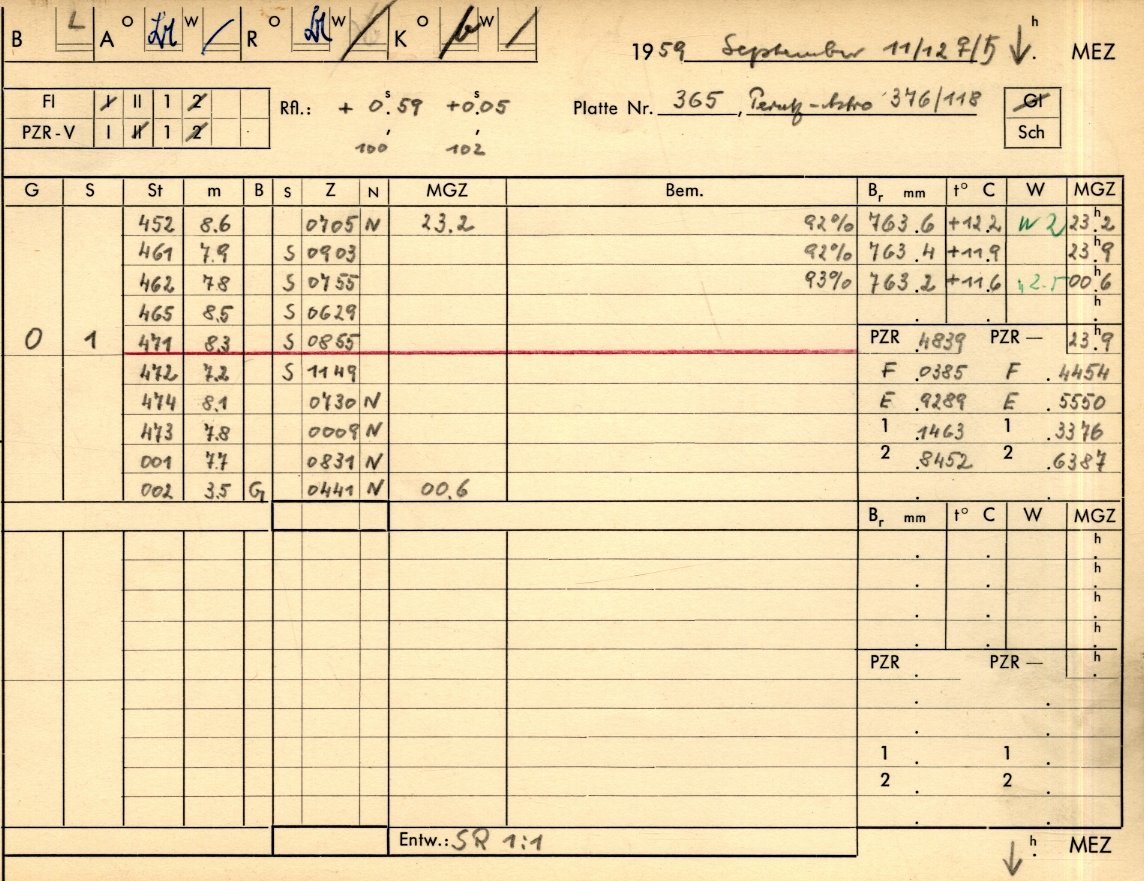 B L A O W R O W K O W
1959 September 11/12 h MEZ
FI I II 1 2
PZR-V I II 1 2
Rfl.: + 0.s59 +0.s05
100 102
Platte Nr. 365, Perutz-Astro 376/118
Gl
Sch
G S St m B S Z N MGZ Bem. Br mm t° C W MGZ
452 8.6 0705 N 23.2 92% 763.6 +12.2 W 2 23h.2
461 7.9 S 0903 92% 763.4 +11.9 23h.9
462 78 S 0755 93% 763.2 +11.6 00h.6
465 8.5 S 0629 h
0 1 471 8.3 S 0855 PZR .4839 PZR — 23h.9
472 7.2 S 1149 F .0385 F .4454
474 8.1 0730 N E .9289 E .5550
473 7.8 0009 N 1 .1463 1 .3376
001 7.7 0831 N 2 .8452 2 .6387
002 3.5 G 0441 N 00.6
Br mm t° C W MGZ
h
h
h
h
PZR PZR — h
1 1
2 2
Entw.: SR 1:1
h MEZ